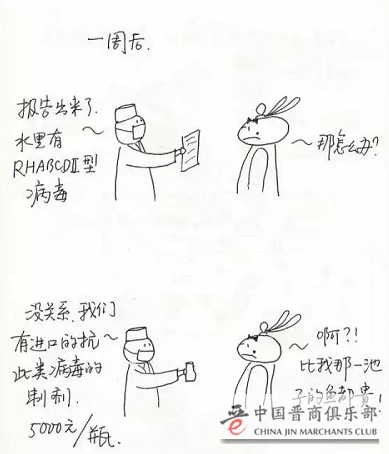 一周后.
报告出来了.
水里有
RHABCDⅡ型
病毒
那怎么办?
没关系.我们
有进口的抗
此类病毒的
制剂.
5000元/瓶.
啊?!
比我那一池
子的鱼都贵!
中国晋商俱乐部
CHINA JIN MARCHANTS CLUB